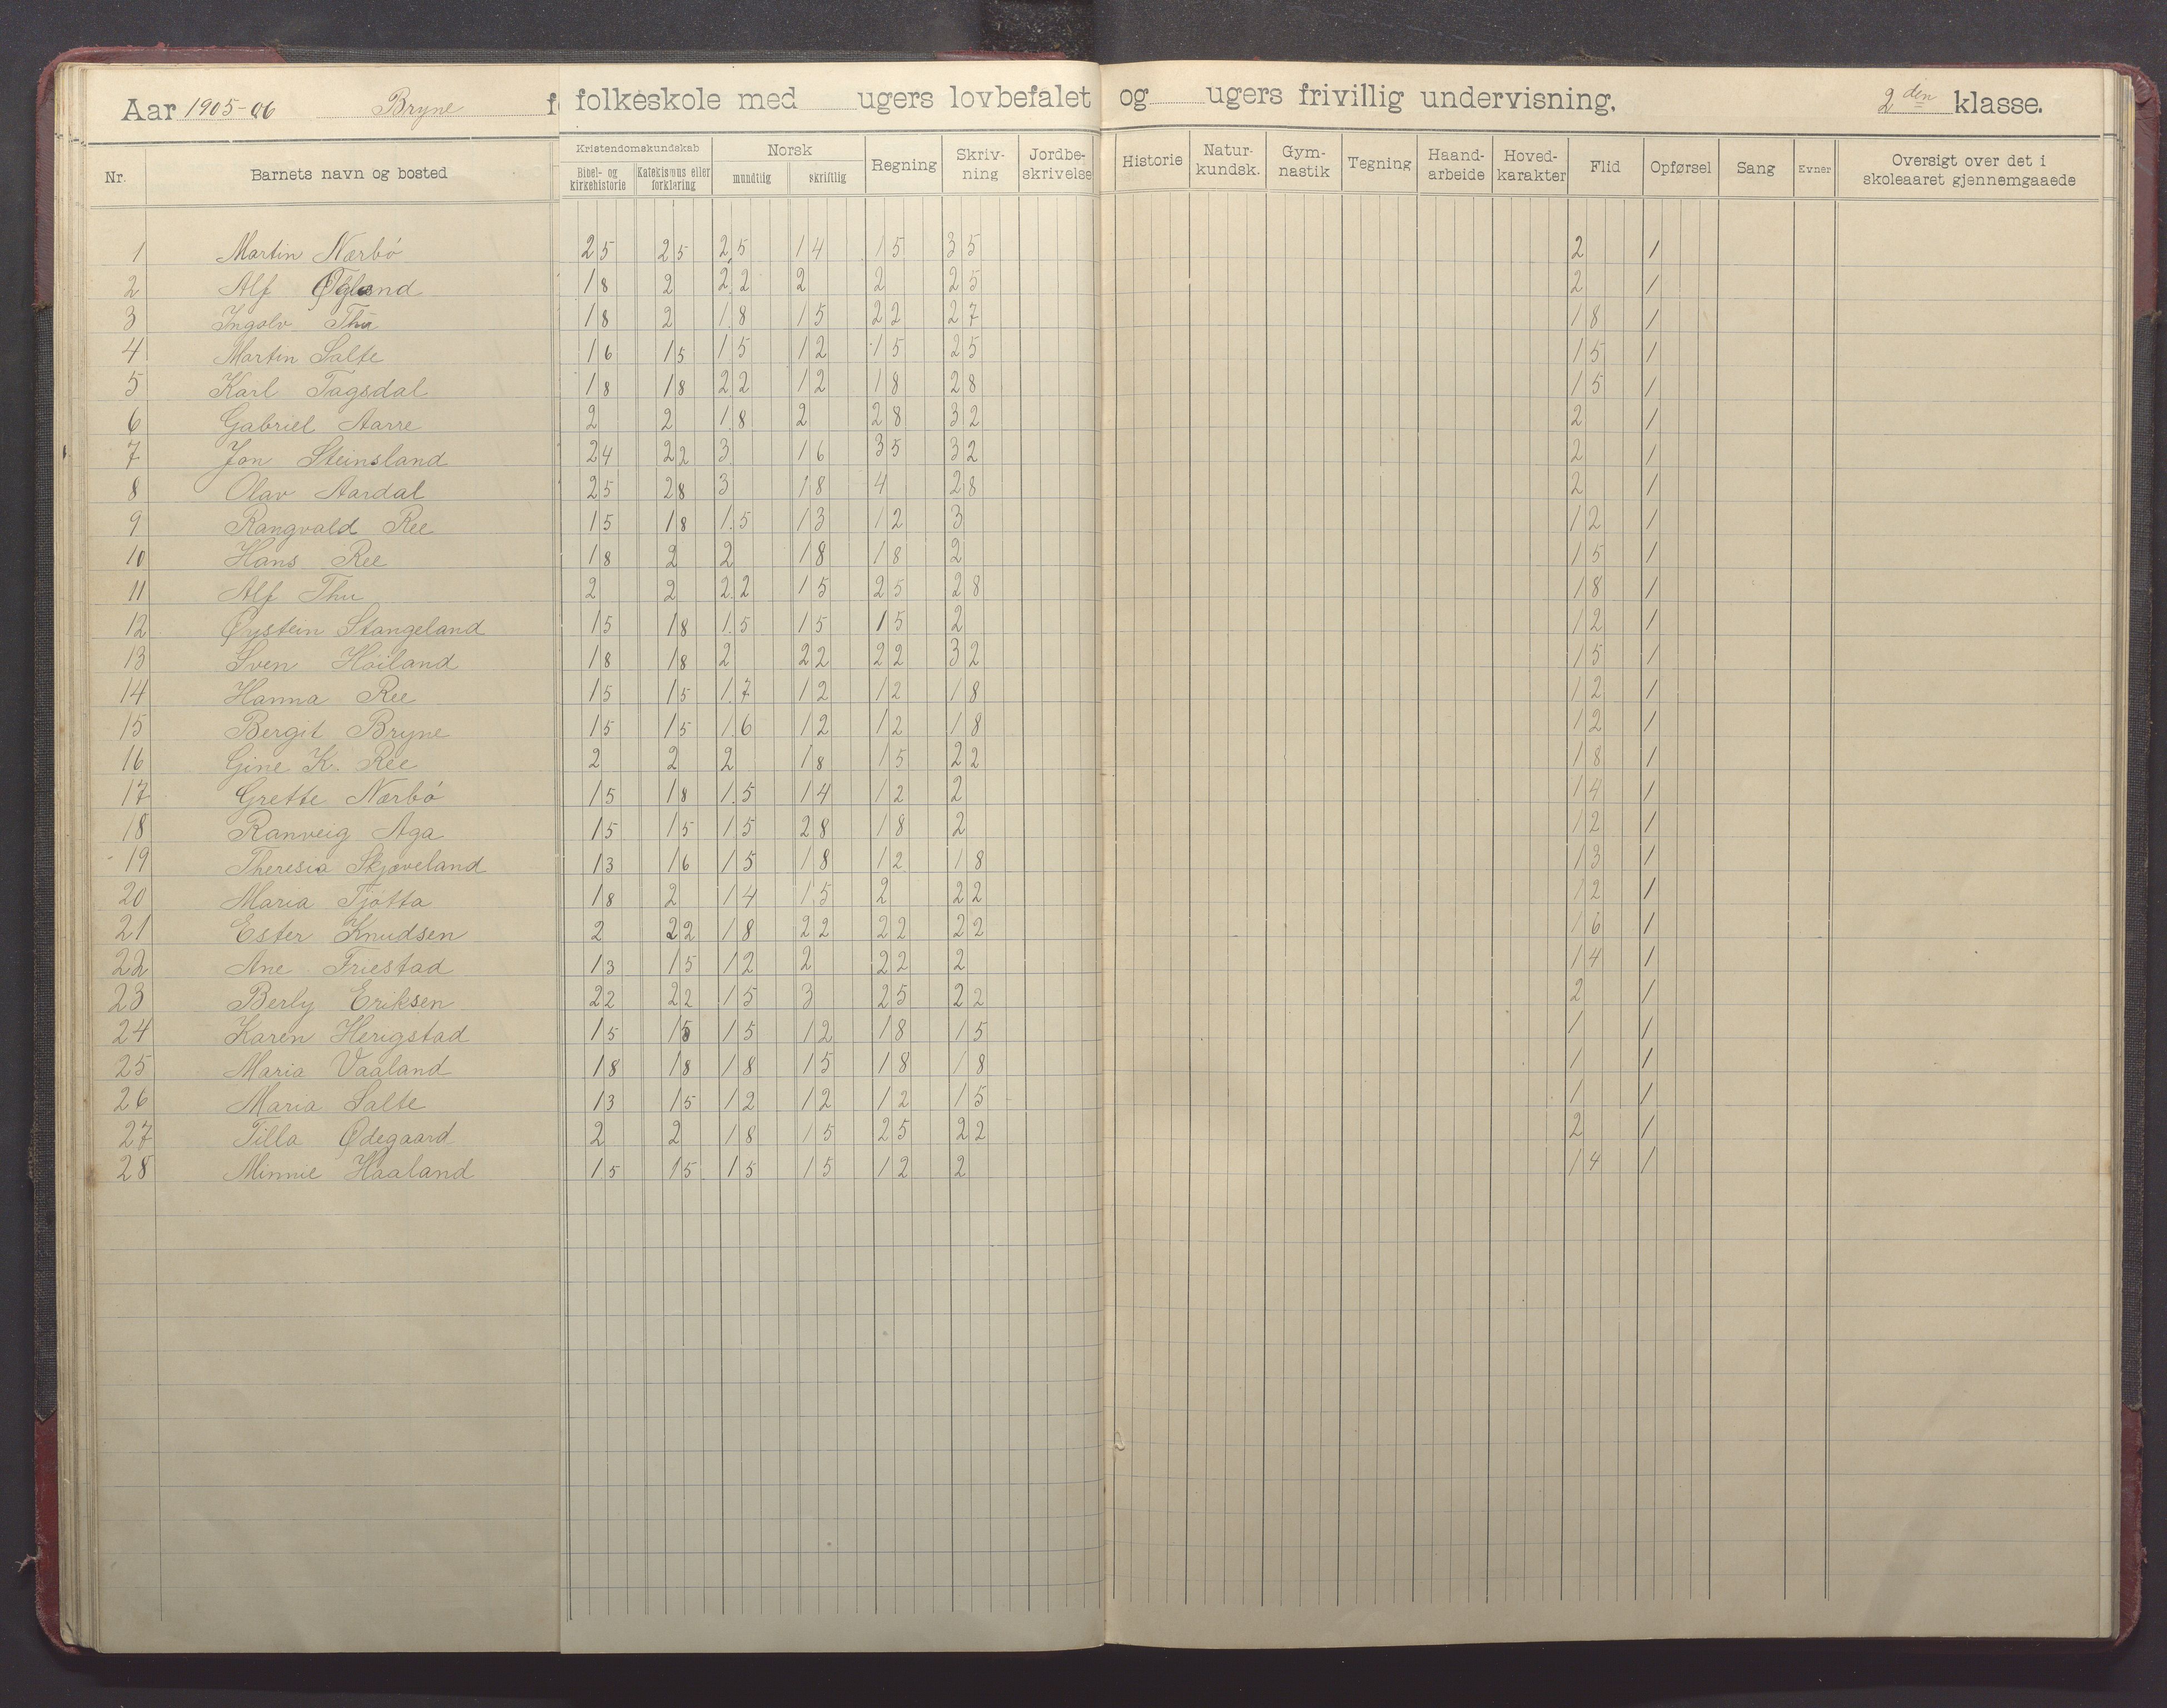 Aar 1905-06 Bryne folkeskole med ugers lovbefalet og ugers frivillig undervisning. 2den klasse.
Nr. Barnets navn og bosted Kristendomskundskab Bibel- og kirkehistorie Katekismus eller forklaring Norsk mundtlig skriftlig Regning Skriv-ning Jordbe-skrivelse Historie Natur-kundsk. Gym-nastik Tegning Haand-arbeide Hoved-karakter Flid Opførsel Sang Evner Oversigt over det i skoleaaret gjennemgaaede
1 Martin Nærbó 25 25 25 14 15 35 2 1
2 Alf Øgland 18 2 2.2 2 2 25 2 1
3 Ingolv Thu 18 2 1.8 15 22 27 18 1
4 Martin Salte 16 15 15 12 15 25 15 1
5 Karl Tagsdal 18 18 22 12 18 28 15 1
6 Gabriel Aarre 2 2 1.8 2 28 32 2 1
7 Jon Steinsland 24 22 3 16 35 32 2 1
8 Olav Aardal 25 28 3 18 4 28 2 1
9 Rangvald Ree 15 18 1.5 13 12 3 12 1
10 Hans Ree 18 2 2 18 18 2 15 1
11 Alf Thu 2 2 2.2 15 25 28 18 1
12 Øystein Stangeland 15 18 1.5 15 15 2 12 1
13 Sven Hóiland 18 18 2 22 22 32 15 1
14 Hanna Ree 15 15 1.7 12 12 18 12 1
15 Bergit Bryne 15 15 1.6 12 12 18 12 1
16 Gine K. Ree 2 2 2 18 15 22 18 1
17 Grette Nærbó 15 18 1.5 14 12 2 14 1
18 Ranveig Aga 15 15 15 28 18 2 12 1
19 Theresia Skjæveland 13 16 15 18 12 18 13 1
20 Maria Tjótta 18 2 14 15 2 22 12 1
21 Ester Knudsen 2 22 18 22 22 22 16 1
22 Ane Friestad 13 15 12 2 22 2 14 1
23 Berly Eriksen 22 22 15 3 25 22 2 1
24 Karen Herigstad 15 15 15 12 18 15 1 1
25 Maria Vaaland 18 18 18 15 18 18 1 1
26 Maria Salte 13 15 12 12 12 15 1 1
27 Tilla Ødegaard 2 2 18 15 25 22 2 1
28 Minnie Haaland 15 15 15 15 12 2 14 1